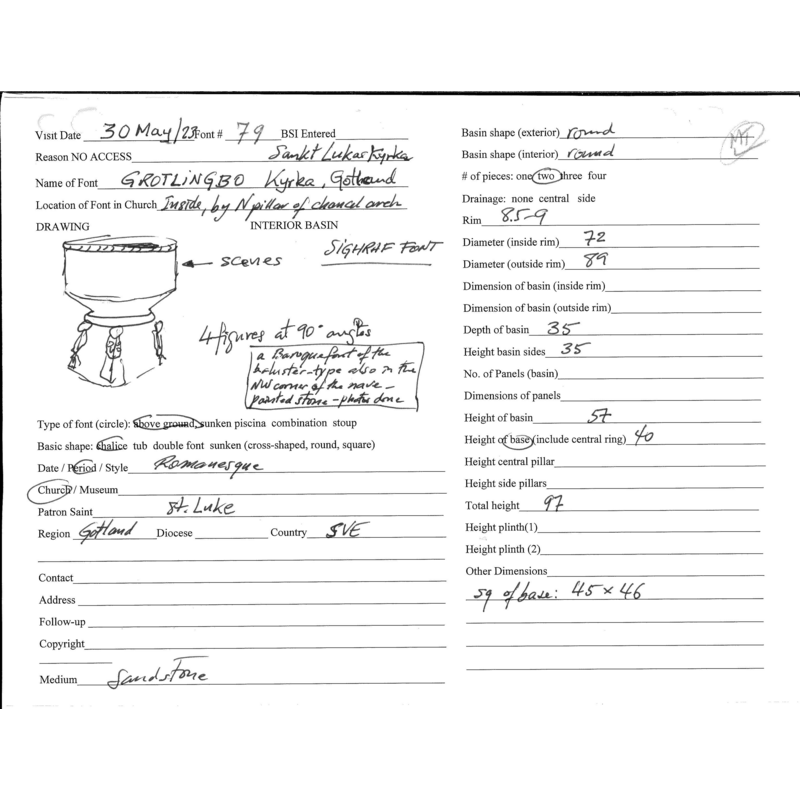 Visit Date 30 May/23 Font # 79 BSI Entered
Reason NO ACCESS Sankt Lukas Kyrka
Name of Font GROTLINGBO Kyrka, Gotland
Location of Font in Church Inside, by N pillar of chancel arch
DRAWING INTERIOR BASIN
SIGHRAF FONT
scenes
4 figures at 90° angles
a Baroque font of the
baluster-type also in the
NW corner of the nave -
painted stone - photos done
Type of font (circle): above ground, sunken piscina combination stoup
Basic shape: chalice tub double font sunken (cross-shaped, round, square)
Date / Period / Style Romanesque
Church / Museum
Patron Saint St. Luke
Region Gotland Diocese Country SVE
Contact
Address
Follow-up
Copyright
Medium Sandstone
Basin shape (exterior) round
Basin shape (interior) round
# of pieces: one two three four
Drainage: none central side
Rim 8.5-9
Diameter (inside rim) 72
Diameter (outside rim) 89
Dimension of basin (inside rim)
Dimension of basin (outside rim)
Depth of basin 35
Height basin sides 35
No. of Panels (basin)
Dimensions of panels
Height of basin 57
Height of base (include central ring) 40
Height central pillar
Height side pillars
Total height 97
Height plinth(1)
Height plinth (2)
Other Dimensions
sq of base: 45 x 46